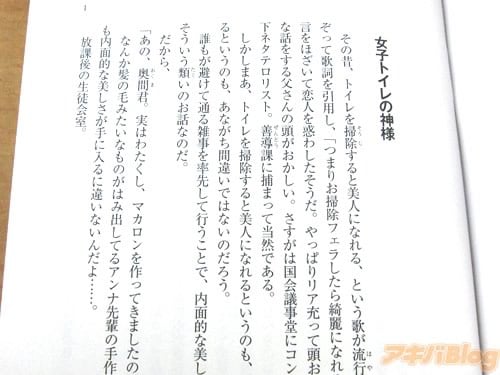 1
女子トイレの神様
その昔、トイレを掃除すると美人になれる、という歌が流行
ぞって歌詞を引用し、「つまりお掃除フェラしたら綺麗になれ
言をほざいて恋人を惑わしたそうだ。やっぱりリア充って頭お
な話をする父さんの頭がおかしい。さすがは国会議事堂にコン
下ネタテロリスト。善導課に捕まって当然である。
しかしまあ、トイレを掃除すると美人になれるというのも、
るというのも、あながち間違いではないのだろう。
誰もが避けて通る雑事を率先して行うことで、内面的な美し
そういう類いのお話なのだ。
だから、
「あの、奥間君。実はわたくし、マカロンを作ってきましたの
なんか髪の毛みたいなものがはみ出してるアンナ先輩の手作
も内面的な美しさが手に入るに違いないんだよ……。
放課後の生徒会室。
アキバBlog